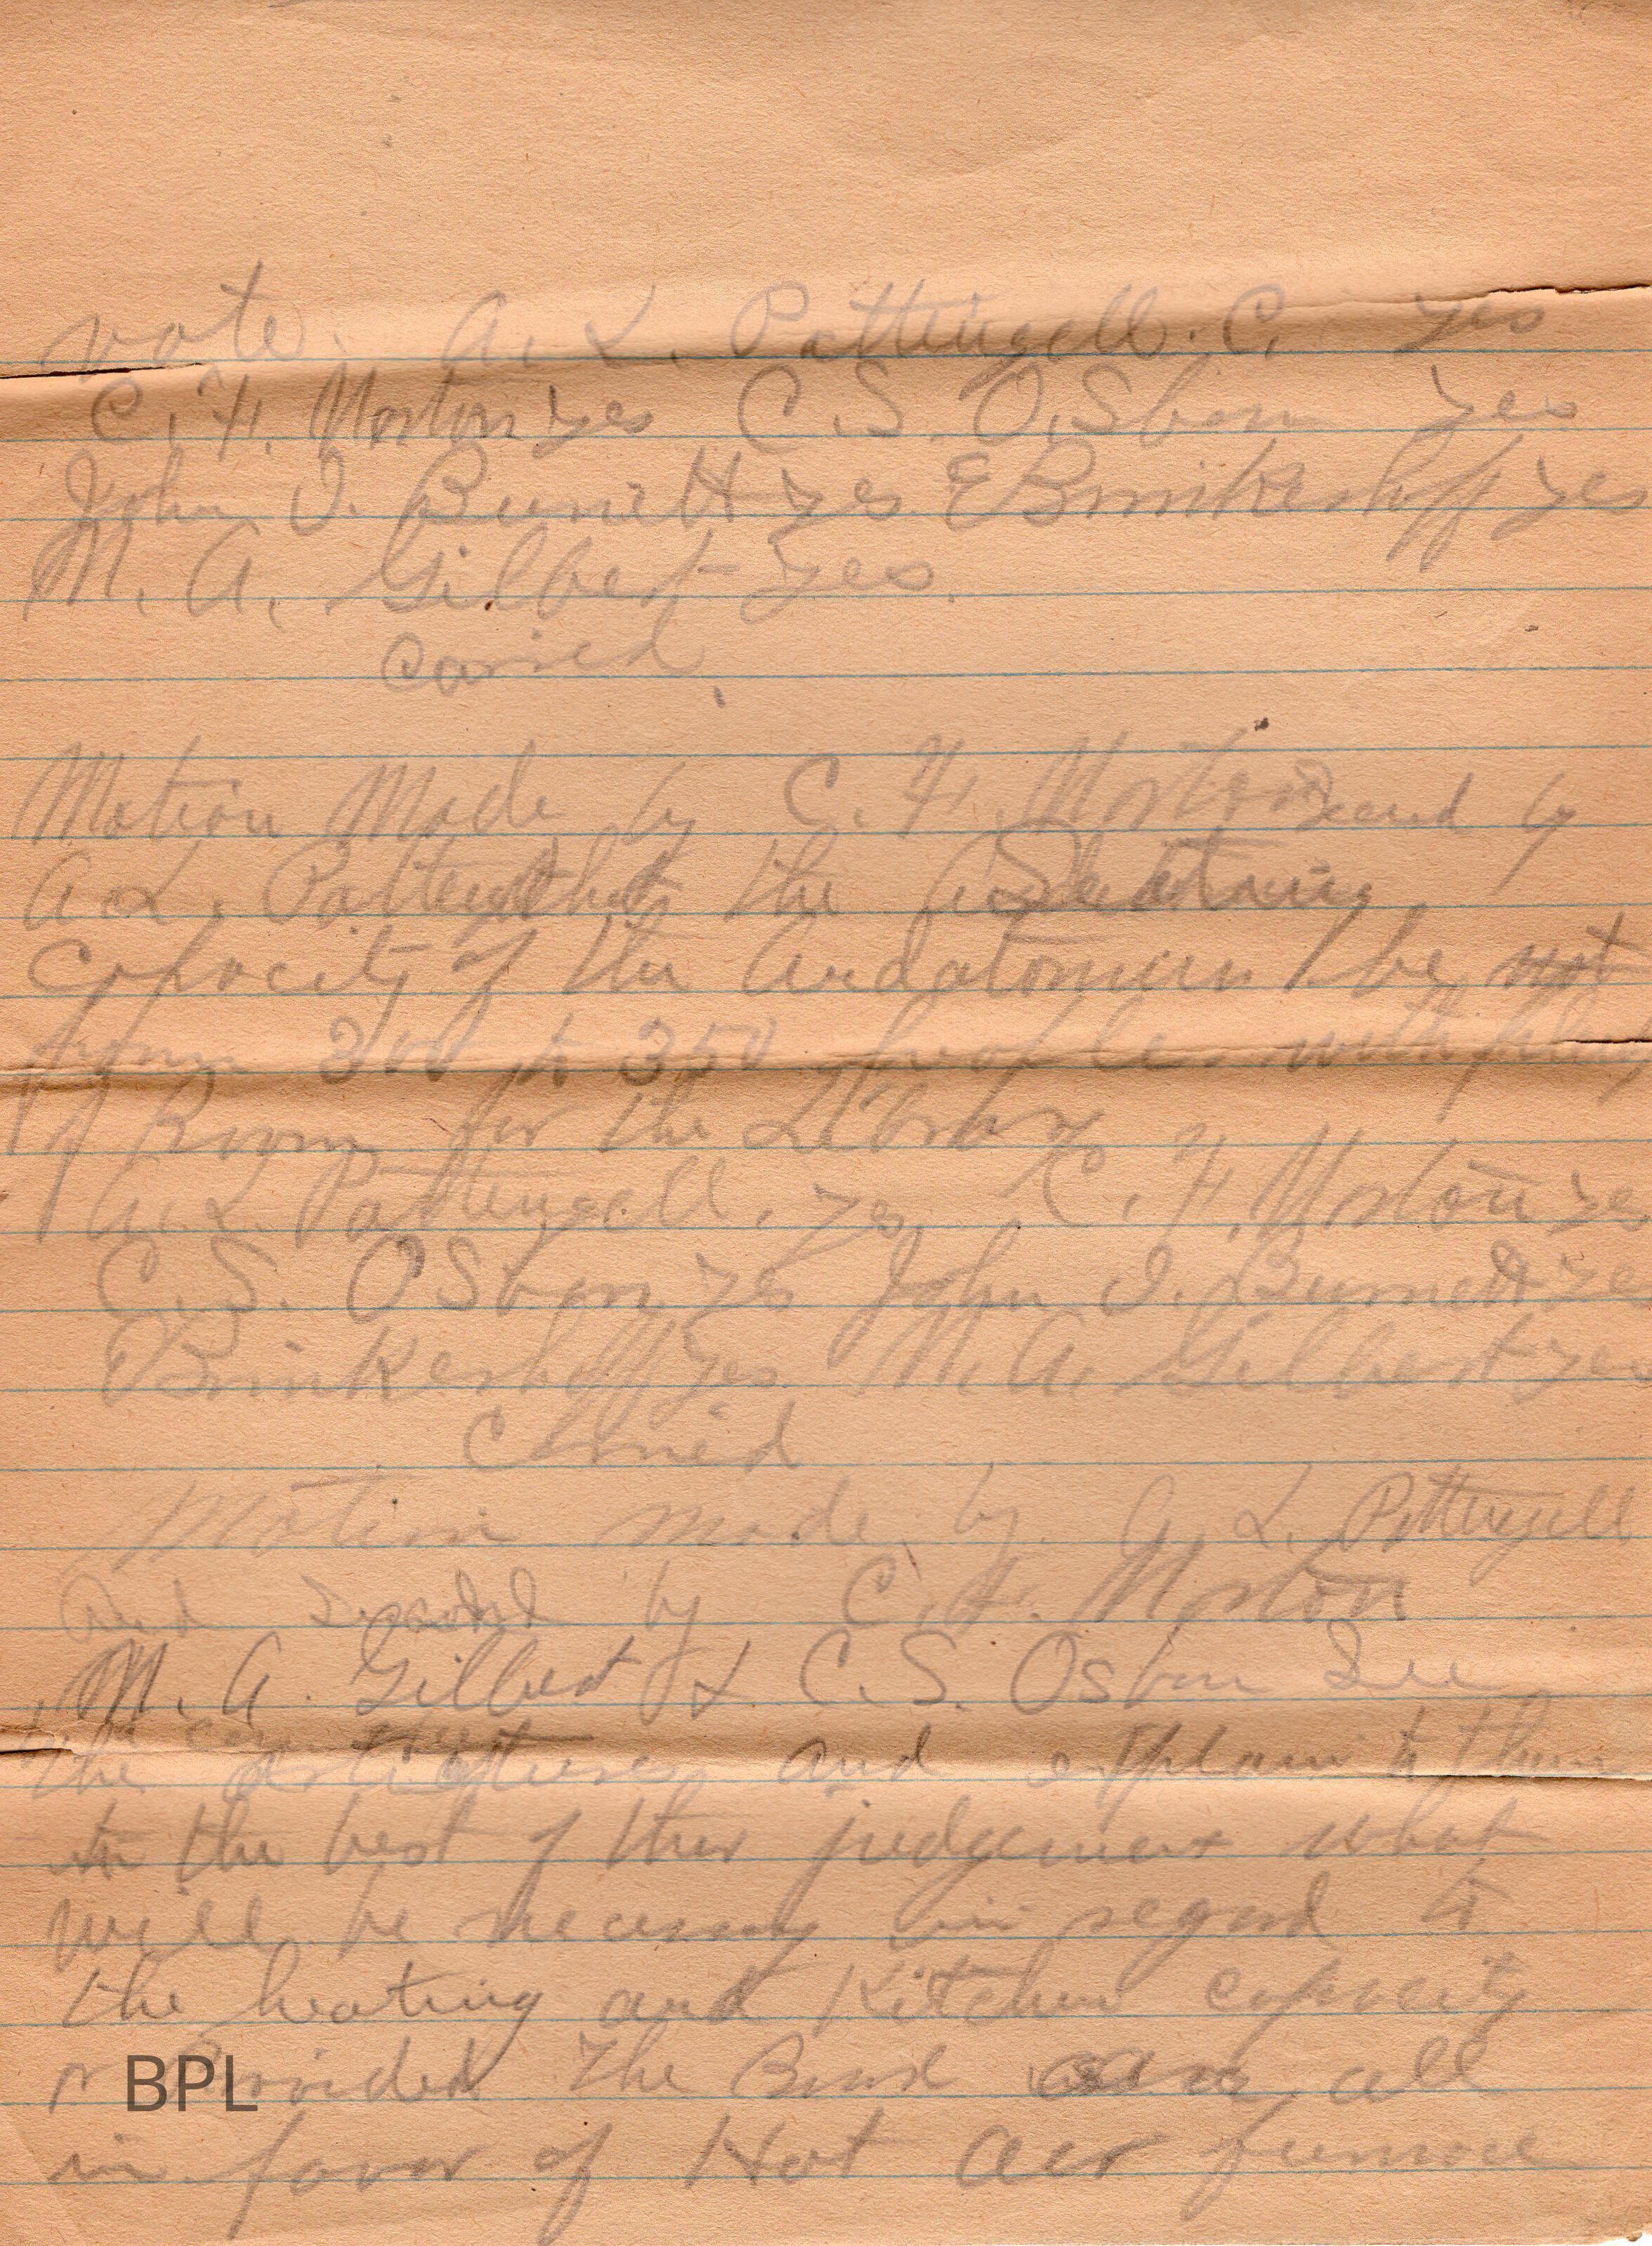 vote. A. L. Pattengell. C. yes
C. H. Norton yes C. S. OSborn yes
John I. Burnett yes E Brinkerhoff yes
M. A. Gilbert yes.
Carried.
Motion Made by C. H. Norton Second by
A. L. that the
Capacity of the be not
from 300 to 350 people with plenty
of Room for the Library
A. L. Pattengell. yes. C. H. Norton yes
C. S. OSborn yes John I. Burnett yes
Brinkerhoff yes M. A. Gilbert yes
Carried
Motion made by A. L. Pattengell
and by C. H. Norton
M. A. Gilbert & C. S. Osborn See
the and explain to them
to the best of their judgement what
will be necessary in regard to
the heating and Kitchen capacity
provided The Board are all
in favor of Hot air furnace
BPL